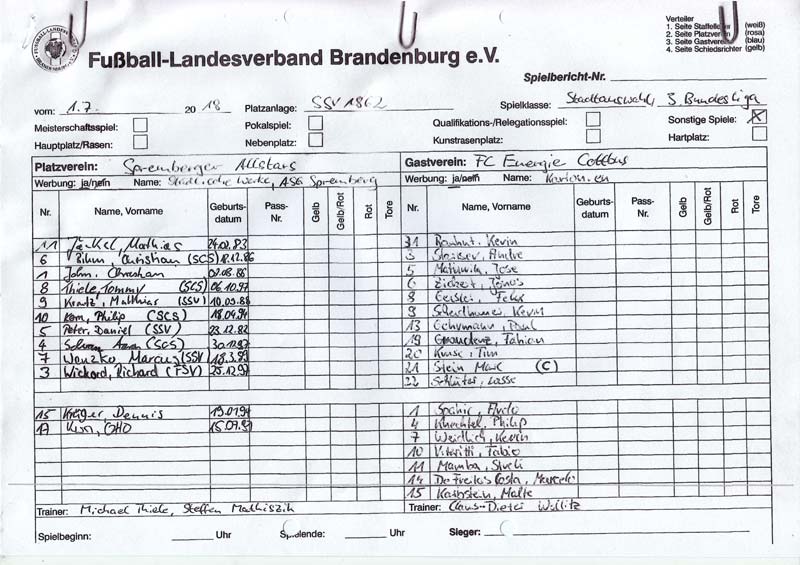 Verteiler
1. Seite Staffelleiter (weiß)
2. Seite Platzverein (rosa)
3. Seite Gastverein (blau)
4. Seite Schiedsrichter (gelb)
Fußball-Landesverband Brandenburg e.V.
Spielbericht-Nr.
vom: 1.7. 2018 Platzanlage: SSV 1862 Spielklasse: Stadtauswahl, 3. Bundesliga
Meisterschaftsspiel: Pokalspiel: Qualifikations-/Relegationsspiel: Sonstige Spiele: X
Hauptplatz/Rasen: Nebenplatz: Kunstrasenplatz: Hartplatz:
Platzverein: Spremberger Allstars Gastverein: FC Energie Cottbus
Werbung: ja/nein Name: Städtische Werke, ASG Spremberg Werbung: ja/nein Name:
Nr. Name, Vorname Geburts-datum Pass-Nr. Gelb Gelb/Rot Rot Tore Nr. Name, Vorname Geburts-datum Pass-Nr. Gelb Gelb/Rot Rot Tore
11 Jäckel, Mathias 24.02.83 31 Rauhut, Kevin
6 Christian (SCS) 12.86 3 Andre
1 John, Christian 02.08.86 5 Matuwila, Jose
8 Thiele, Tommy (SCS) 06.10.97 6 Zickert,
9 Matthias (SSV) 10.09.88 8 Geisler, Felix
10 Philip (SCS) 18.04.94 9 Scheidhauer, Kevin
5 Peter, Daniel (SSV) 23.12.82 13 Schumann, Paul
4 (SCS) 30.12.97 19 Graudenz, Fabian
7 Wenzko, Marcus (SSV) 18.3.89 20 Kruse, Tim
3 Wickord, Richard (FSV) 25.12.97 21 Stein Marc (C)
22 Schlüter, Lasse
15 Krüger, Dennis 19.01.94 1 Spahic, Avdo
17 15.07.91 4 Knechtel, Philip
7 Weidlich, Kevin
10 Viteritti, Fabio
11 Mamba, Streli
14 De Freitas Costa, Marcelo
15 Karbstein, Malte
Trainer: Michael Thiele, Steffen Mathiszik Trainer: Claus-Dieter Wollitz
Spielbeginn: Uhr Spielende: Uhr Sieger: